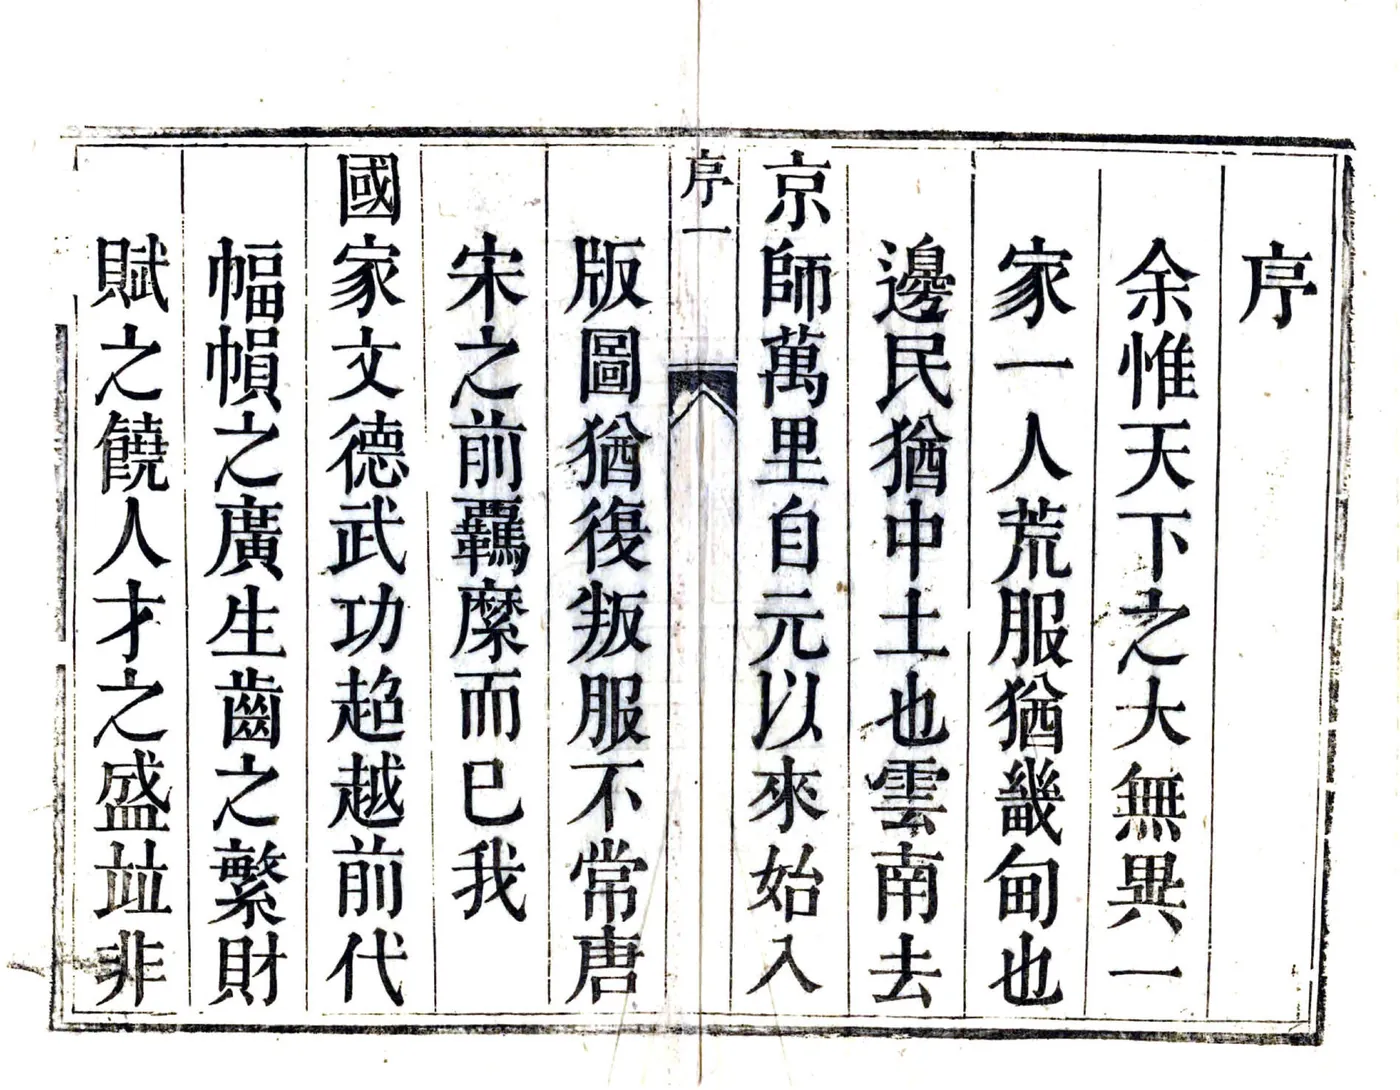 序
余惟天下之大無異一
家一人荒服猶畿甸也
邊民猶中土也雲南去
京師萬里自元以來始入
序一
版圖猶復叛服不常唐
宋之前羈縻而已我
國家文德武功趋越前代
幅幀之廣生齒之繁財
賦之饒人才之盛並非